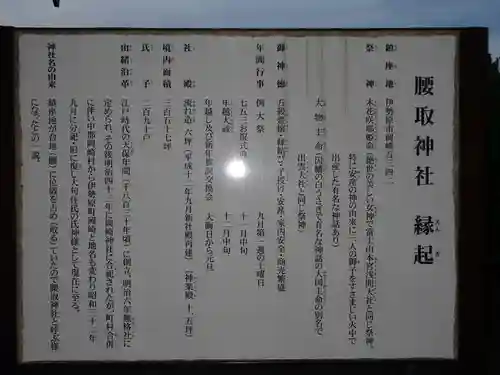 腰取神社 縁起
えん ぎ
鎮座地 伊勢原市岡崎五三四二
祭神 木花咲耶姫命(絶世の美しい女神で富士山本宮浅間大社と同じ祭神。
特に安産の神の由来に二人の御子をすさまじい火中で
出産した有名な神話あり)
大物主命(因幡の白うさぎで有名な神話の大国主命の別名で
出雲大社と同じ祭神)
御神徳 五穀豊穣・縁結び・子授け・安産・家内安全・商売繁盛
年間行事 例大祭 九月第一週の土曜日
七五三お祝式 十一月中旬
年越大祓 十二月中旬
年越し及び新年 大晦日から元旦
社殿 流れ造 六坪(平成十二年九月新社殿再建)(神楽殿十一、五坪)
境内面積 三百五十七坪
氏子 二百九十戸
由緒沿革 江戸時代の天保年間(千八百三十年頃)に創立、明治六年無格社に
定められ、その後明治四十二年に岡崎神社に合祀されたが、町村合併
に伴い中郡岡崎村から伊勢原町岡崎と地名も変わり昭和三十二年
九月に分祀・旧に復し大句住民の氏神様として現在に至る。
神社名の由来 鎮座地が台地(棚)に位置を占め(取る)ていたので腰取神社と呼ぶ様
になったとの一説。